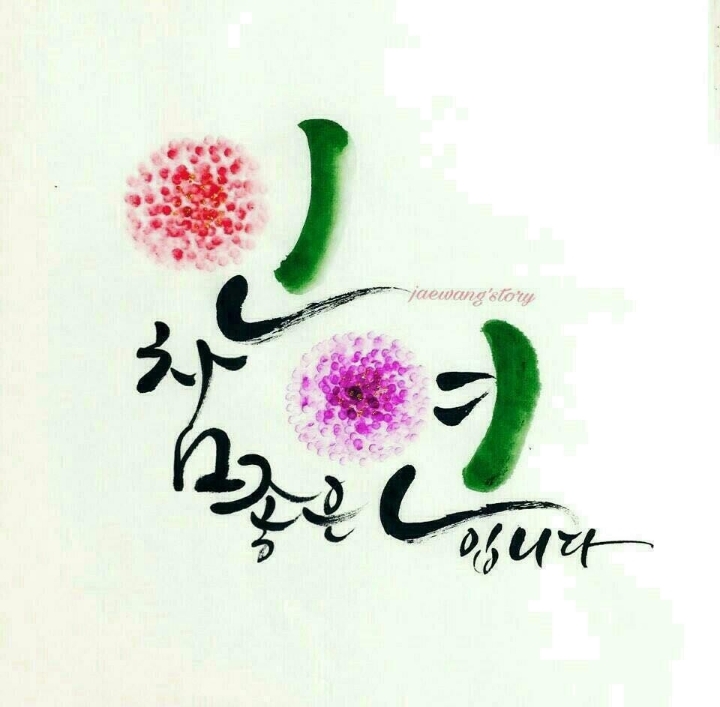 참 좋은
인연
입니다
jaewang'story